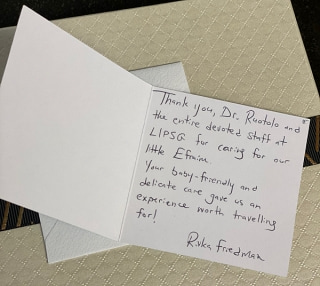 Thank you, Dr. Ruotolo and
the entire devoted staff at
LIPSG for caring for our
little Efraim.
Your baby-friendly and
delicate care gave us an
experience worth travelling
for!
Rivka Friedman